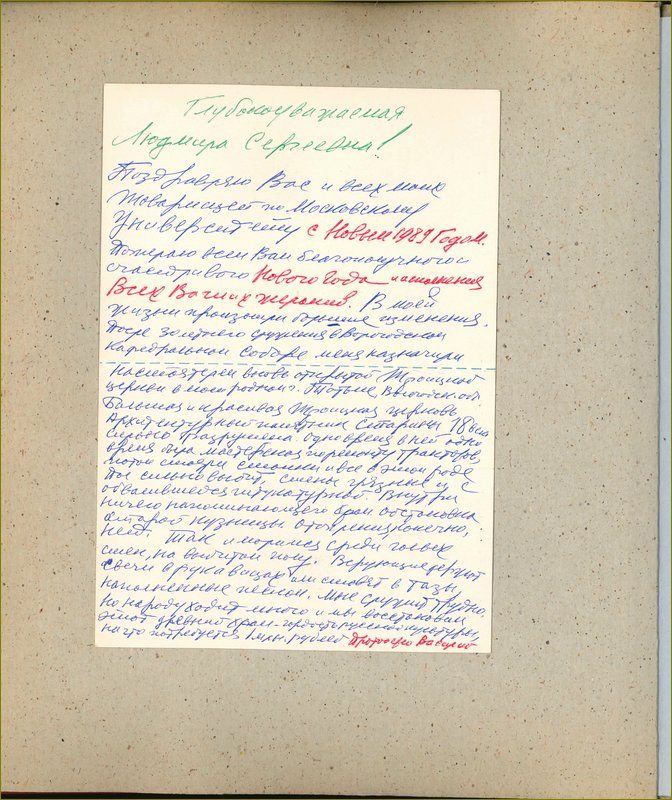 Глубокоуважаемая
Людмила Сергеевна!
Поздравляю Вас и всех моих
товарищей по Московскому
Университету с Новым 1989 Годом.
Пожелаю всем Вам благополучного и
счастливого Нового Года и исполнения
Всех Ваших желаний. В моей
жизни произошли большие изменения.
После 30 летнего служения в Вологодском
Кафедральном соборе меня назначили
настоятелем вновь открытой Троицкой
церкви в моем родном г. Тотьме, Вологодск. обл.
Большая и красивая Троицкая церковь
Архитектурный памятник старины 18 века
сильно разрушена. Одно время в ней
была мастерская ремонту тракторов,
потом стояли станки и все в этом роде
Пол сильно выбит, стены грязные и с
обвалившейся штукатуркой. Внутри
ничего напоминающего храм обстановка
старой кузницы. Отопления, конечно,
нет. Так и молимся среди голых
стен, на выбитом полу. Верующие держат
свечи в рукавицах или ставят в тазы,
наполненные песком. Мне служить трудно.
Но народу ходит много и мы восстановим
этот древний храм - гордость русской культуры,
на что потребуется 1 млн. рублей Протоиерей Василий